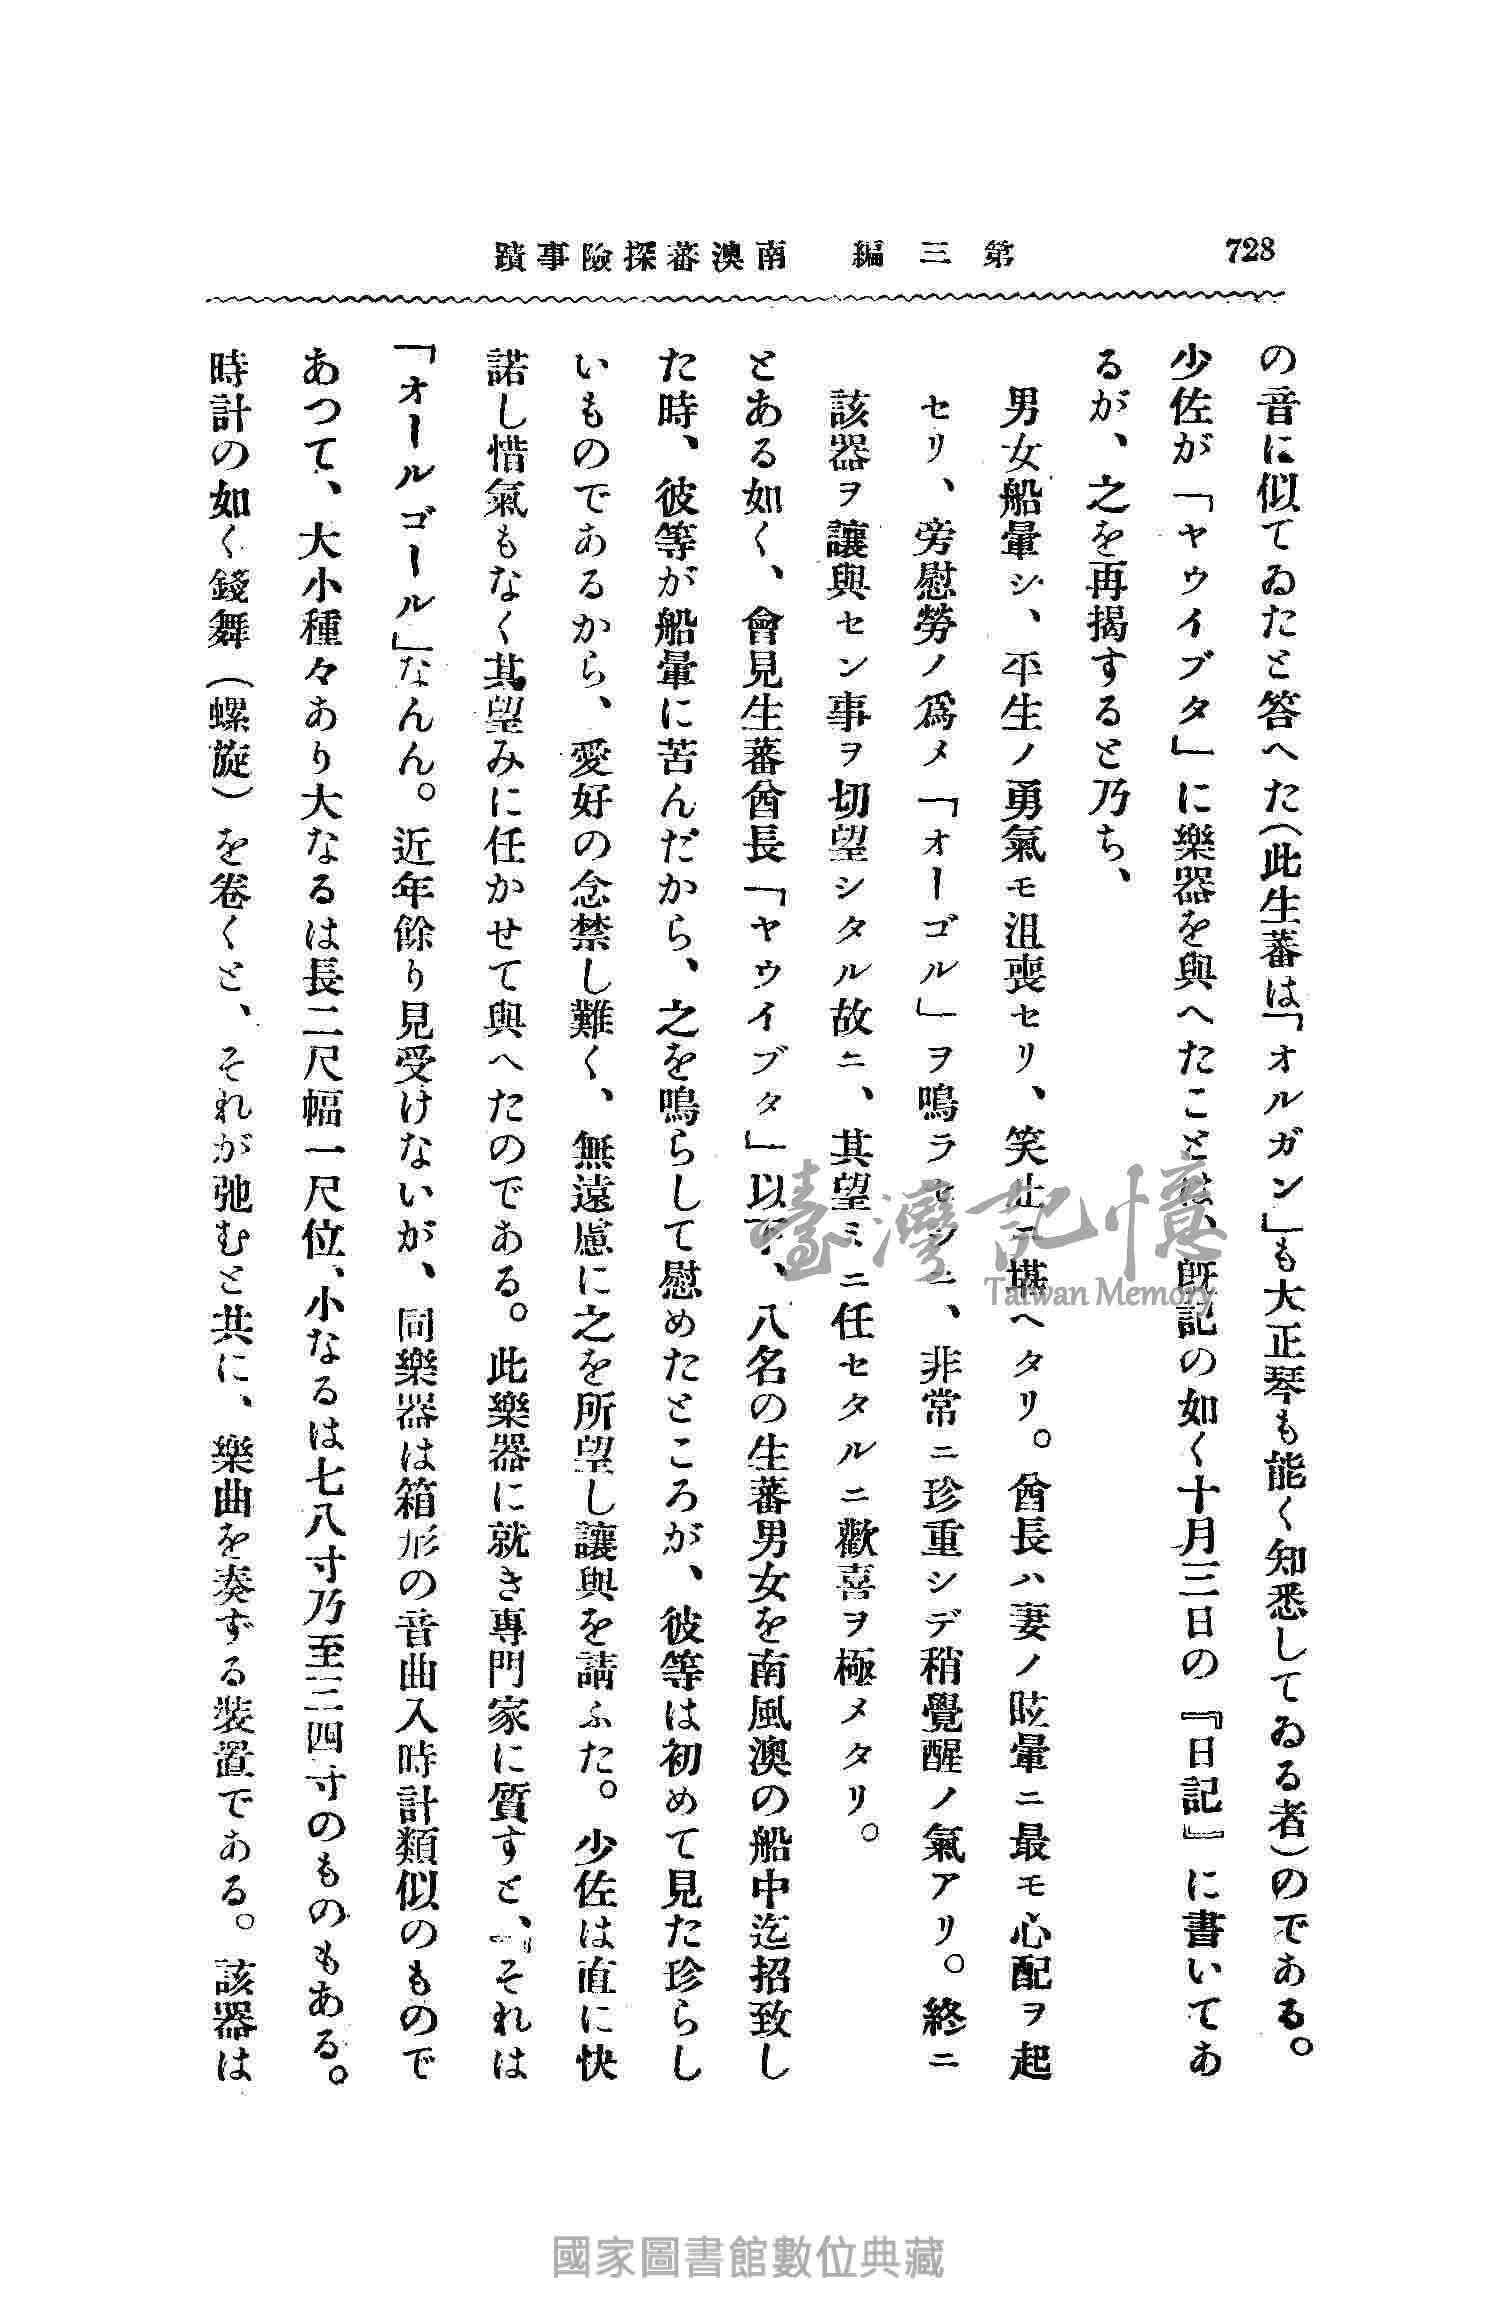 728
第三編　南澳蕃探險事蹟
の音に似てゐたと答へた(此生蕃は「オルガン」も大正琴も能く知悉してゐる者)のである。
少佐が「ヤウイブタ」に樂器を與へたことは、既記の如く十月三日の『日記』に書いてあ
るが、之を再揭すると乃ち、
男女船暈シ、平生ノ勇氣モ沮喪セリ、笑止ニ堪ヘタリ。酋長ハ妻ノ眩暈ニ最モ心配ヲ起
セリ、旁慰勞ノ爲メ「オーゴル」ヲ鳴ラセシニ、非常ニ珍重シデ稍覺醒ノ氣アリ。終ニ
該器ヲ讓與セン事ヲ切望シタル故ニ、其望ミニ任セタルニ歡喜ヲ極メタリ。
とある如く、會見生蕃酋長「ヤウイブタ」以下、八名の生蕃男女を南風澳の船中迄招致し
た時、彼等が船暈に苦んだから、之を鳴らして慰めたところが、彼等は初めて見た珍らし
いものであるから、愛好の念禁し難く、無遠慮に之を所望し讓與を請ふた。少佐は直に快
諾し惜氣もなく其望みに任かせて與へたのである。此樂器に就き專門家に質すと、それは
「オールゴール」なんん。近年餘り見受けないが、同樂器は箱形の音曲入時計類似のもので
あつて、大小種々あり大なるは長二尺幅一尺位、小なるは七八寸乃至三四寸のものもある。
時計の如く錢舞(螺旋)を卷くと、それが弛むと共に、樂曲を奏ずる裝置である。該器は
臺灣記憶
Taiwan Memory
國家圖書館數位典藏